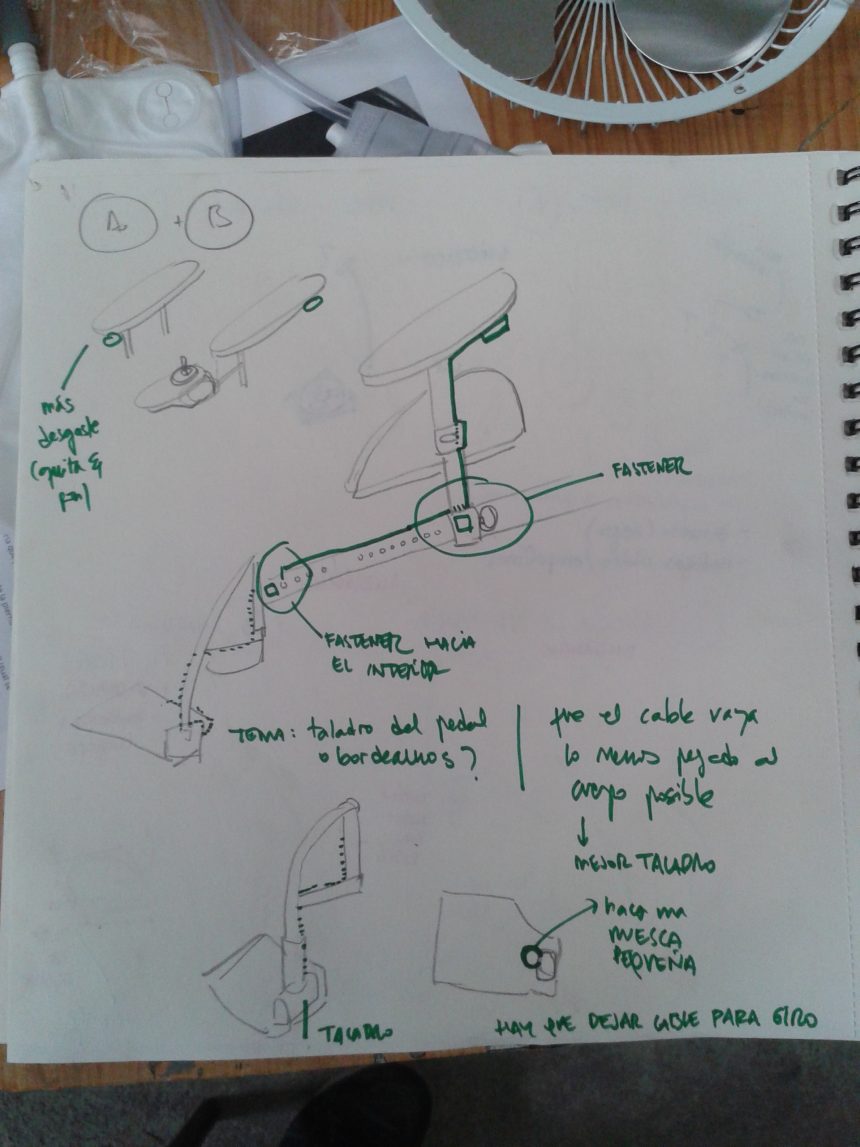 A + B
más
desgaste
(quita &
pon)
FASTENER
FASTENER HACIA
EL INTERIOR
TEMA: taladro del pedal
o bordearlos?
que el cable vaya
lo menos pegado al
cuerpo posible
MEJOR TALADRO
hacer una
MUESCA
PEQUEÑA
TALADRO
HAY QUE DEJAR CABLE PARA GIRO